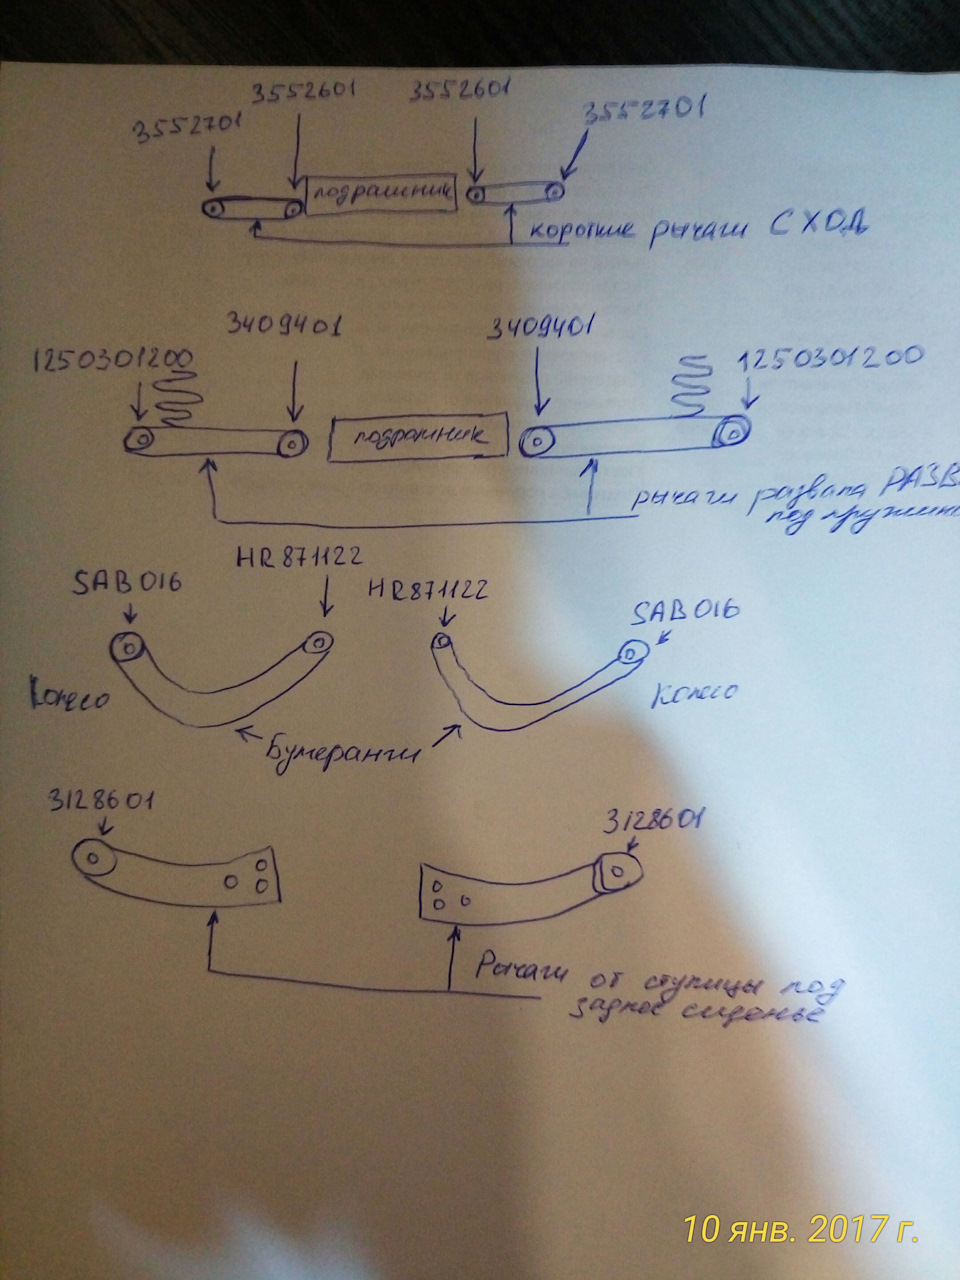 3552601 3552601
3552701 3552701
подрамник
короткие рычаги СХОД
3409401 3409401
1250301200 1250301200
подрамник
рычаги развала РАЗВ
под пружин
HR871122
SAB016 HR871122 SAB016
Колесо Колесо
Бумеранги
3128601 3128601
Рычаги от ступицы под
заднее сиденье
10 янв. 2017 г.